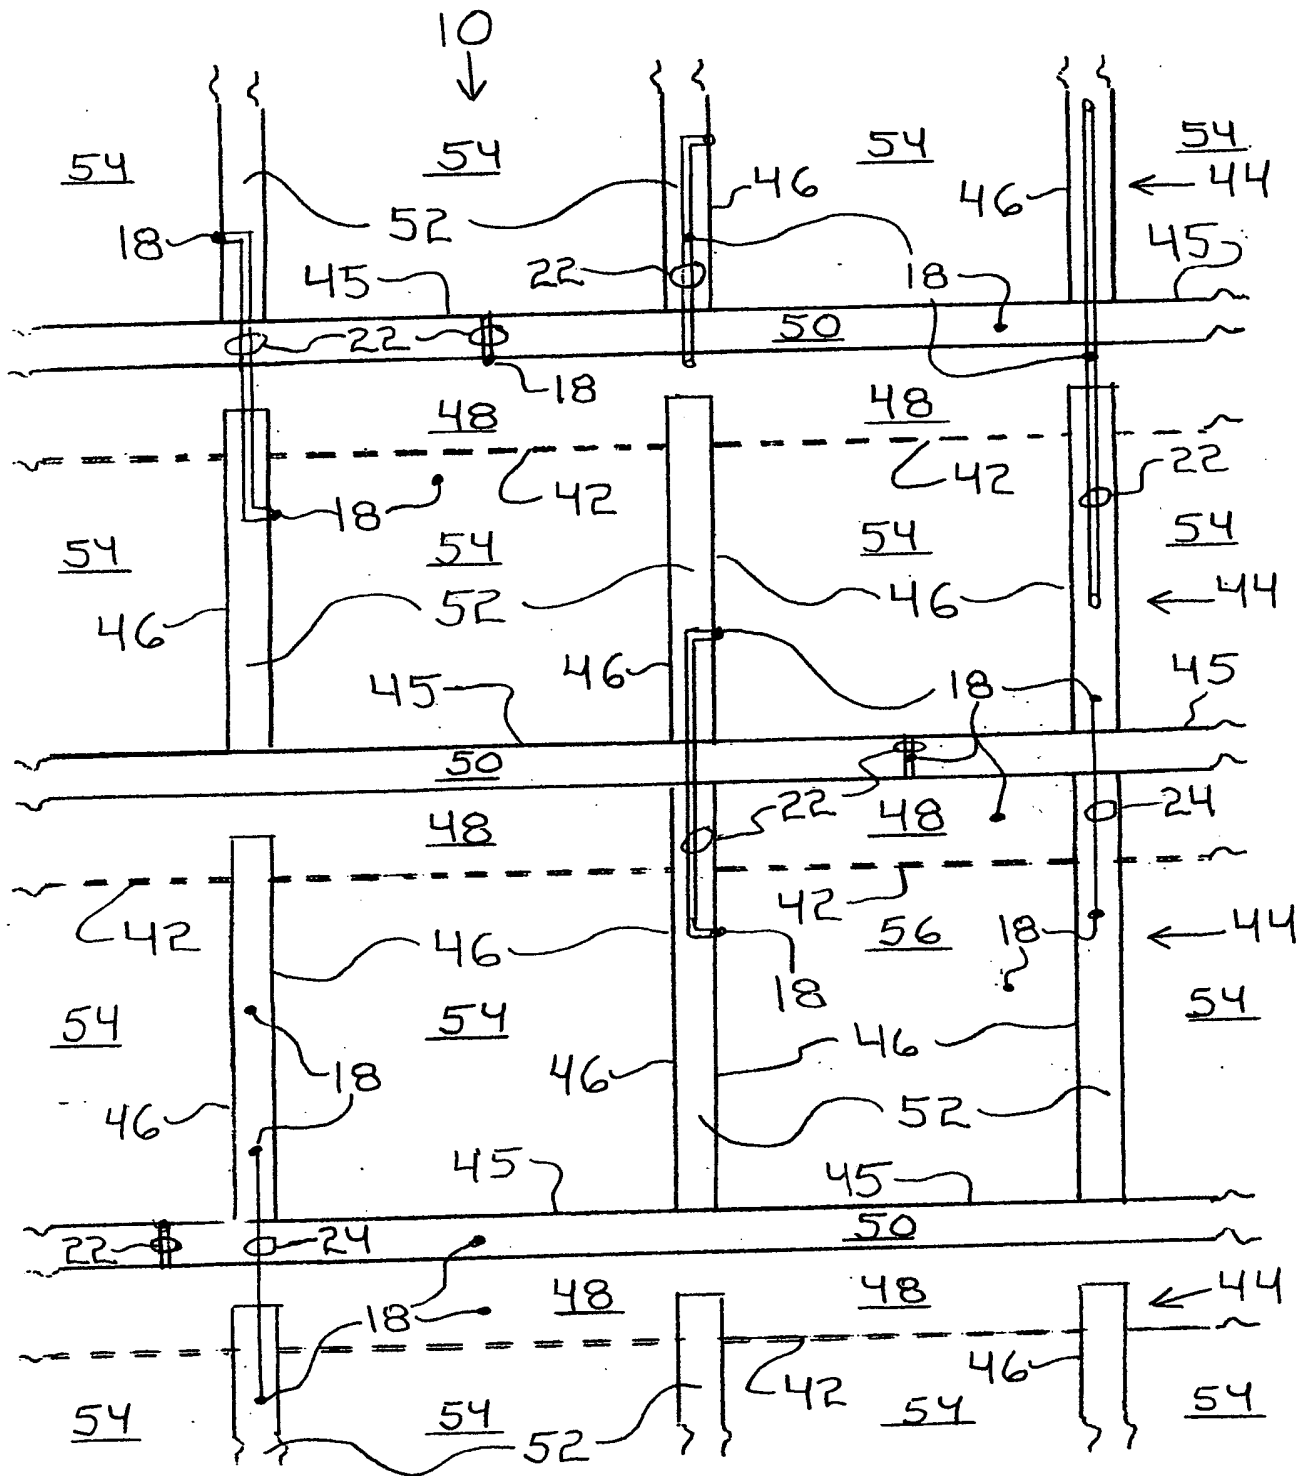 10
54 54 54 54
46 46 44
52
18 45 22 18 45
22 50
18
48 48
42 42 22
18
54 54 54 54
46 52 46 44
46 18 45
45
50
22 24
48 48
42 42
46 56 18 44
18
54 54 54
46 46
18
46 52
45 45
22 24 50
48 48 44
18
42 46
54 54 54 54
52